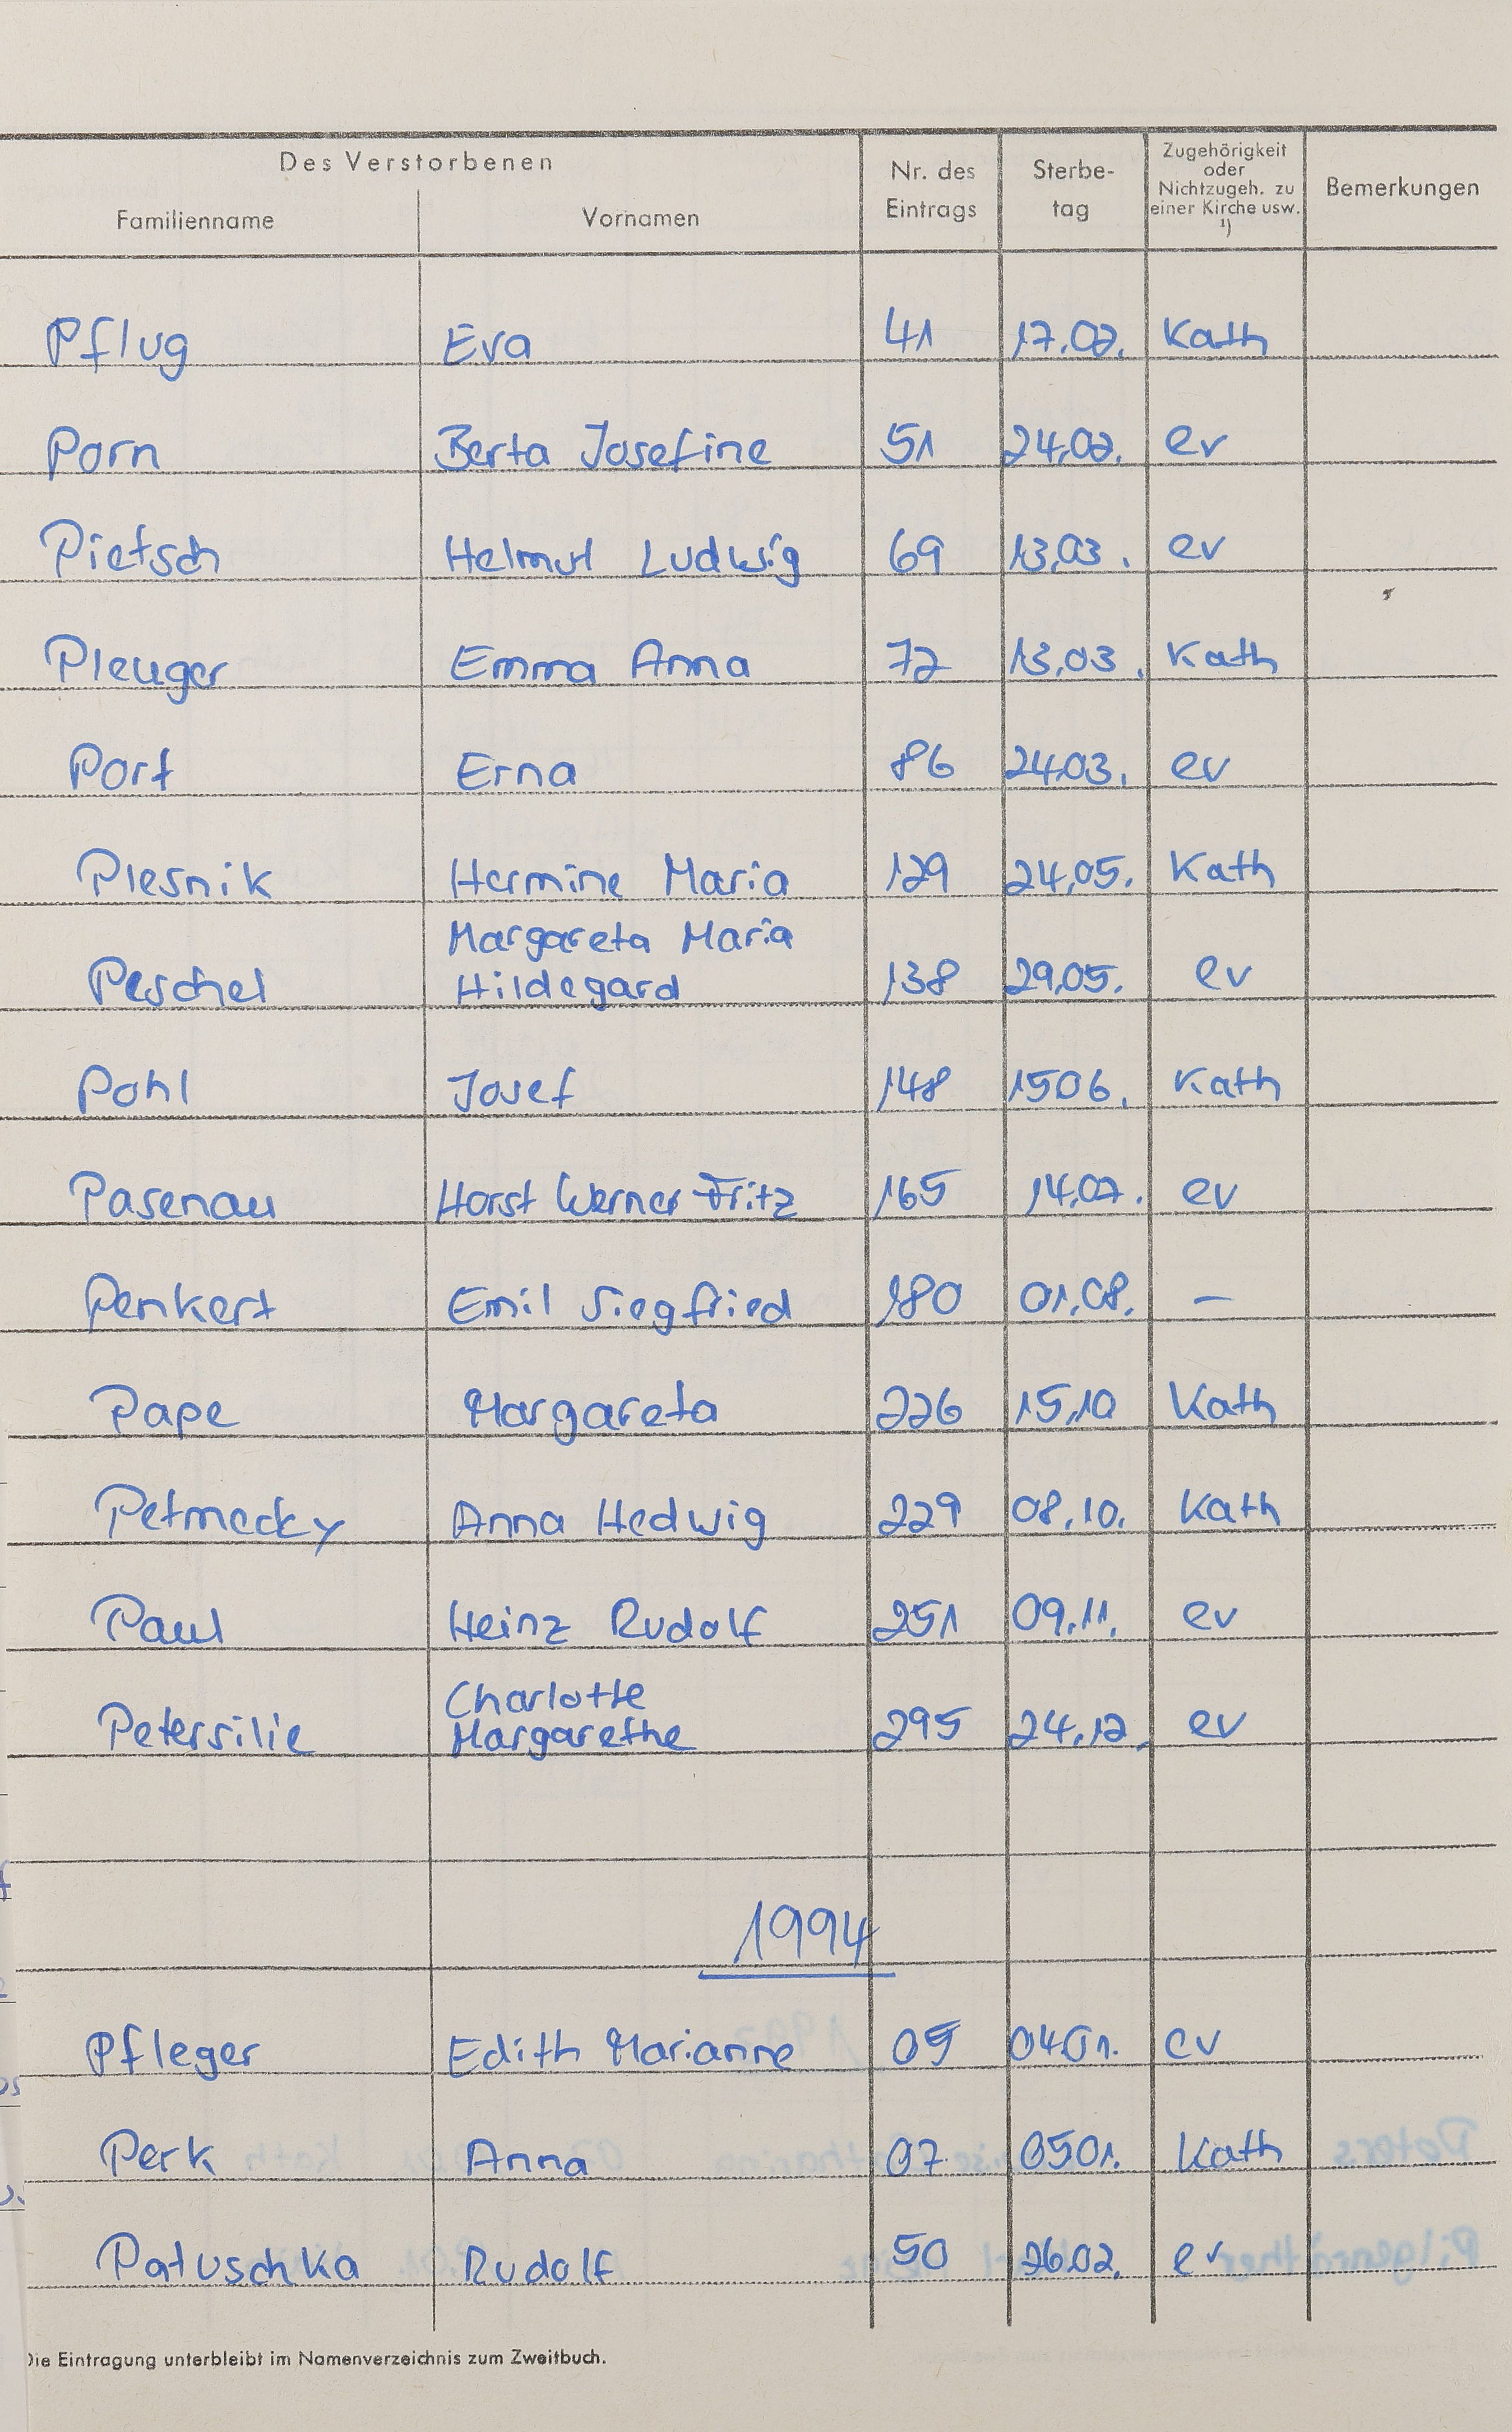 Des Verstorbenen
Familienname Vornamen Nr. des Eintrags Sterbe-tag Zugehörigkeit oder Nichtzugeh. zu einer Kirche usw. 1) Bemerkungen
Pflug Eva 41 17.02. Kath
Porn Berta Josefine 51 24.02. ev
Pietsch Helmut Ludwig 69 13.03. ev
Pleuger Emma Anna 72 13.03. Kath
Port Erna 86 24.03. ev
Plesnik Hermine Maria 129 24.05. Kath
Margareta Maria
Peschel Hildegard 138 29.05. ev
Pohl Josef 148 1506. Kath
Pasenau Horst Werner Fritz 165 14.07. ev
Penkert Emil Siegfried 180 01.08. –
Pape Margareta 226 15.10 Kath
Petmecky Anna Hedwig 229 08.10. Kath
Paul Heinz Rudolf 251 09.11. ev
Charlotte
Petersilie Margarethe 295 24.12. ev
1994
Pfleger Edith Marianne 05 0401. ev
Perk Anna 07 0501. Kath
Patuschka Rudolf 50 26.02. ev
Die Eintragung unterbleibt im Namenverzeichnis zum Zweitbuch.